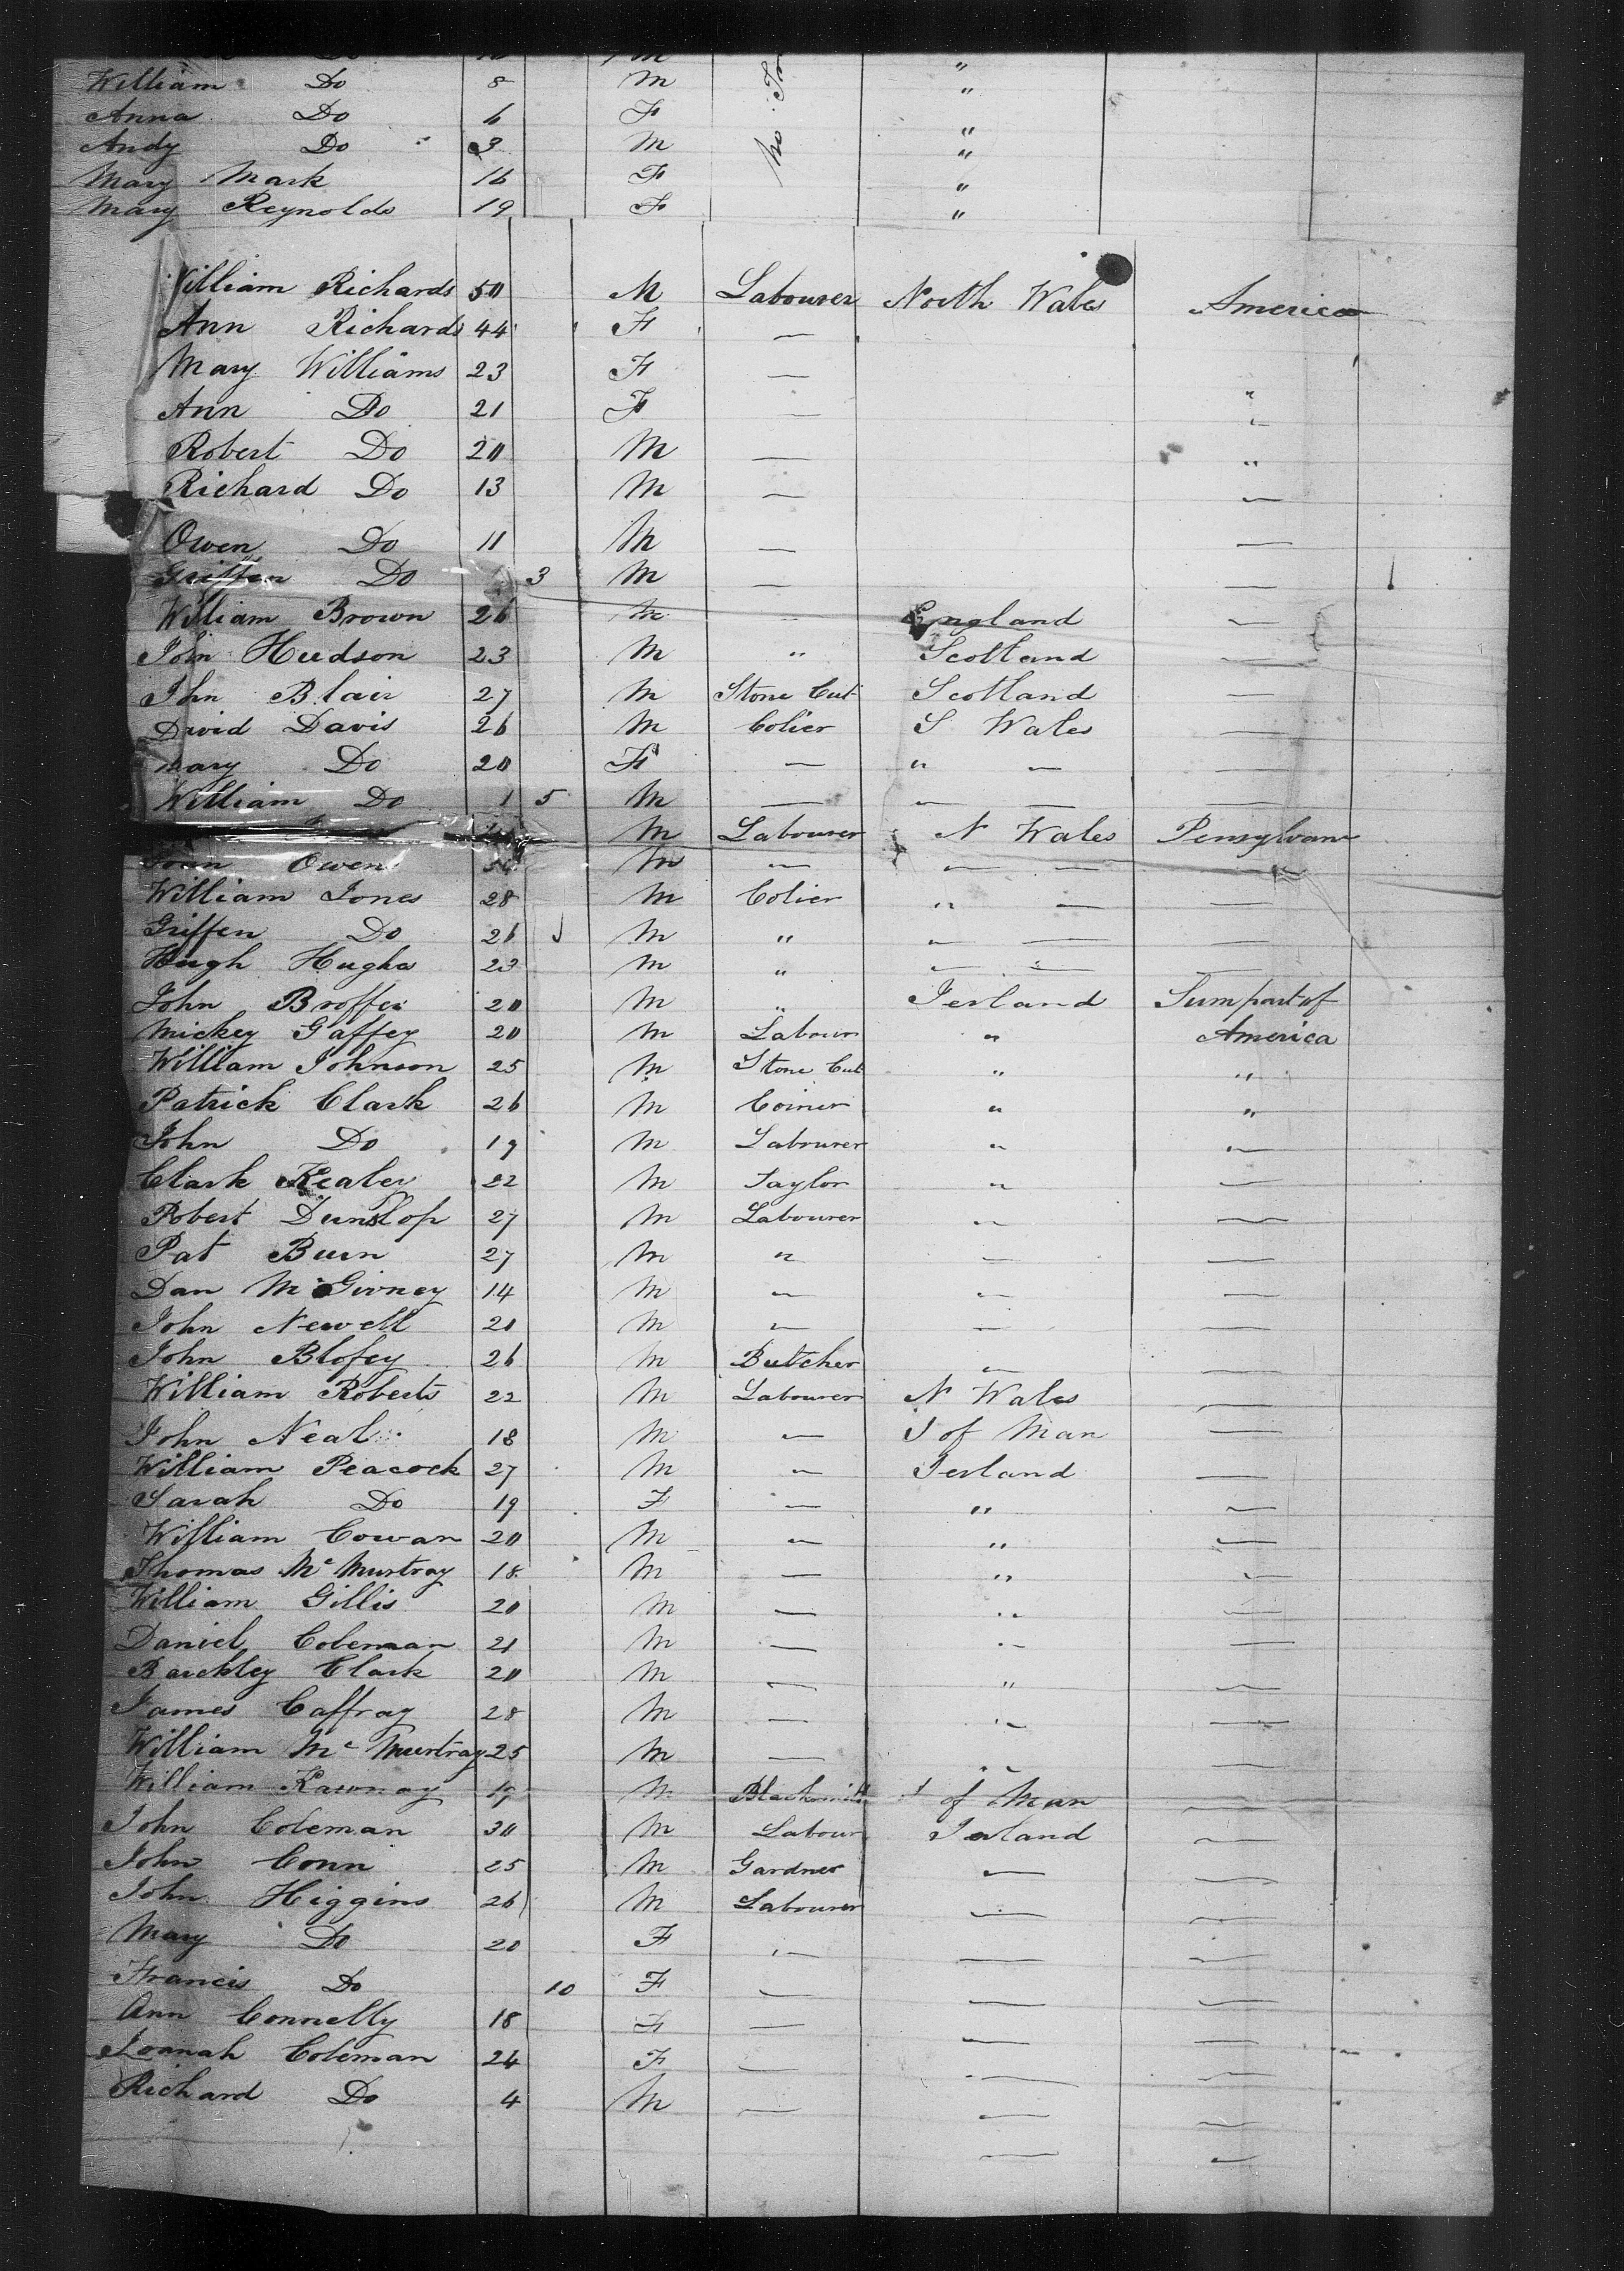 William Do 8 M "
Anna Do 6 F "
Andy Do 3 M "
Mary Mark 16 F "
Mary Reynolds 19 F "
William Richards 50 M Labourer North Wales America
Ann Richards 44 F —
Mary Williams 23 F —
Ann Do 21 F — "
Robert Do 20 M — "
Richard Do 13 M — "
Owen Do 11 M — —
Griffen Do 3 M — —
William Brown 26 M — England —
John Hudson 23 M " Scotland —
John Blair 27 M Stone Cut Scotland —
David Davis 26 M Colier S Wales —
Mary Do 20 F — " — —
William Do 1 5 M — — — —
M Labourer N Wales Pensylvan
John Owen M — — — —
William Jones 28 M Colier " — —
Griffen Do 26 M " — — —
Hugh Hughs 23 M " — — —
John 20 M " Ierland Sum part of
Mickey Gaffey 20 M Labour " America
William Johnson 25 M Stone Cut " "
Patrick Clark 26 M " "
John Do 19 M Labourer " "
Clark 22 M Taylor " —
Robert Dunslop 27 M Labourer " —
Pat Burn 27 M " — —
Dan McGivney 14 M " — —
John Newell 20 M " — —
John Blofey 26 M Butcher — —
William Roberts 22 M Labourer N Wales —
John Neal 18 M — I of Man —
William Peacock 27 M " Ierland —
Sarah Do 19 F — " —
William Cowan 20 M — " —
Thomas Mc Murtray 18 M — " —
William Gillis 20 M — " —
Daniel Coleman 21 M — " —
Barckley Clark 20 M — " —
James Caffray 28 M — " —
William Mc Murtray 25 M — " —
William M Blacksmith I of Man —
John Coleman 30 M Labour Ierland —
John Conn 25 M Gardner — —
John Higgins 26 M Labourer — —
Mary Do 20 F — — —
Francis Do 10 F — — —
Ann Connelly 18 F — — —
Coleman 24 F — — —
Richard Do 4 M — — —